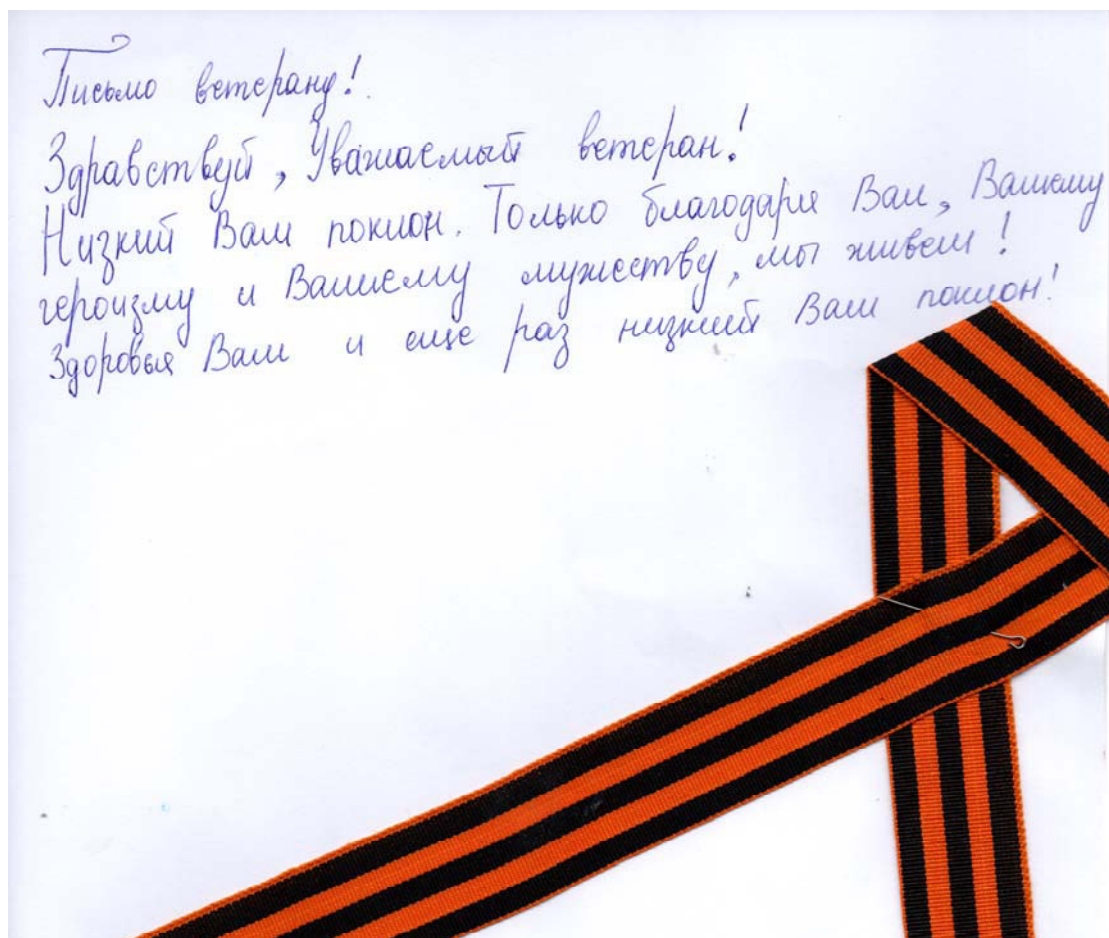 Письмо ветерану!
Здравствуй, Уважаемый ветеран!
Низкий Вам поклон. Только благодаря Вам, Вашему
героизму и Вашему мужеству, мы живем!
Здоровья Вам и еще раз низкий Вам поклон!